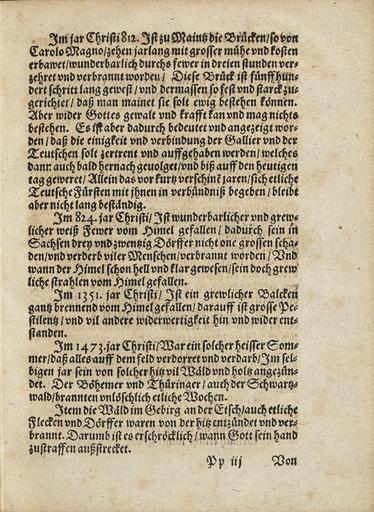 Im jar Christi 812. Ist zu Maintz die Brücken/ so von
Carolo Magno/ zehen jarlang mit grosser mühe vnd kosten
erbawet/ wunderbarlich durchs fewer in dreien stunden ver-
zehret vnd verbrannt worden/ Diese Brück ist fünff hun-
dert schritt lang gewest/ vnd dermassen so fest vnd starck zu-
gerichtet/ daß man mainet sie solt ewig bestehen können.
Aber wider Gottes gewalt vnd krafft kan vnd mag nichts
bestehen. Es ist aber dadurch bedeutet vnd angezeigt wor-
den/ daß die einigkeit vnd verbindung der Gallier vnd der
Teutschen solt zertrent vnd auffgehaben werden/ welches
dann auch bald hernach gevolget/ vnd biß auff den heutigen
tag geweret/ Allein das vor kurtz verschinē jaren/ sich etliche
Teutsche Fürsten mit jhnen in verbündniß begeben/ bleibt
aber nicht lang beständig.
Im 824. jar Christi/ Ist wunderbarlicher vnd grew-
licher weiß Fewer vom Himel gefallen/ dadurch sein in
Sachsen drey vnd zwentzig Dörffer nicht one grossen scha-
den/ vnd verderb viler Menschen/ verbrannt worden/ Vnd
wann der Himel schon hell vnd klar gewesen/ sein doch grew
liche strahlen vom Himel gefallen.
Im 1351. jar Christi/ Ist ein grewlicher Balcken
gantz brennend vom Himel gefallen/ darauff ist grosse Pe-
stilentz/ vnd vil andere widerwertigkeit hin vnd wider ent-
standen.
Im 1473. jar Christi/ War ein solcher heisser Som-
mer/ daß alles auff dem feld verdorret vnd verdarb/ Im sel-
bigen jar sein von solcher hitz vil Wäld vnd holtz angezün-
det. Der Böhemer vnd Thüringer/ auch der Schwartz-
wald/ brannten vnlöschlich etliche Wochen.
Item die Wäld im Gebirg an der Etsch/ auch etliche
Flecken vnd Dörffer waren von der hitz entzündet vnd ver-
brannt. Darumb ist es erschröcklich/ wann Gott sein hand
zustraffen außstrecket.
Pp iij Von